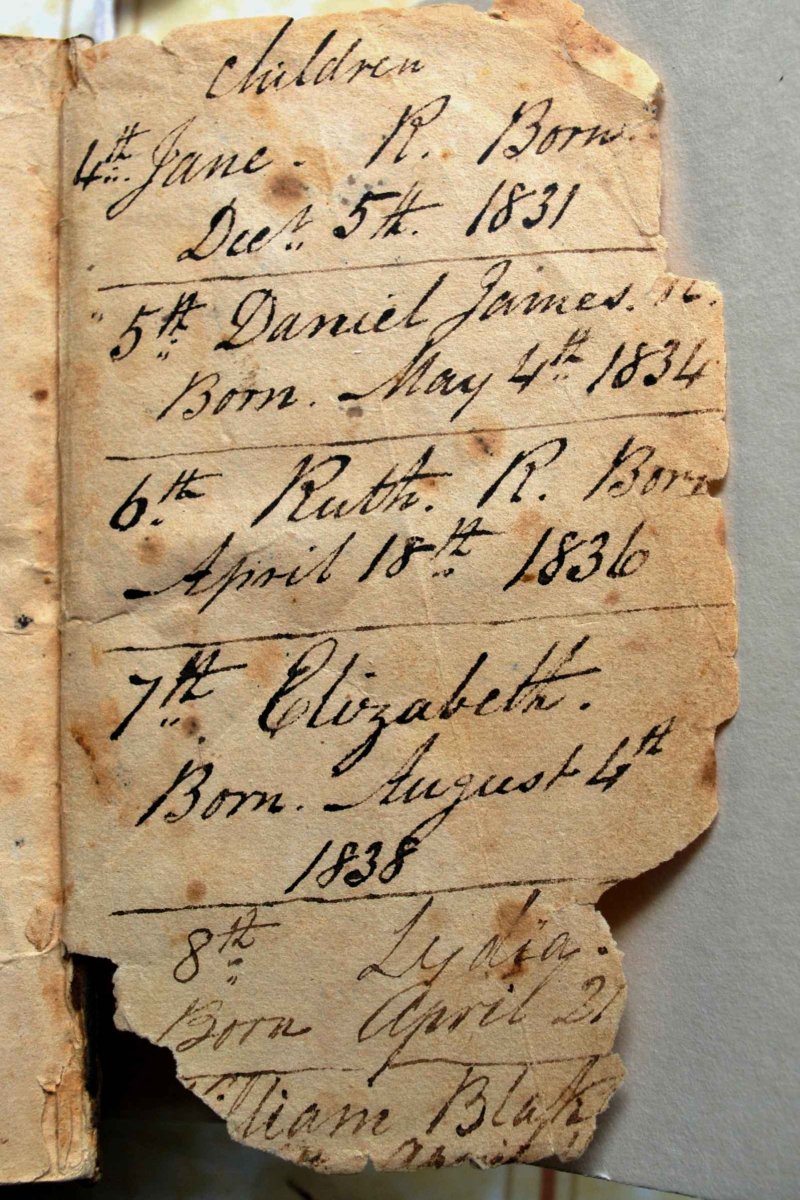 Children
4th Jane. R. Born.
Decr. 5th. 1831
5th Daniel James. R.
Born. May 4th 1834
6th Ruth. R. Born
April 18th 1836
7th Elizabeth.
Born. August 4th
1838
8th Lydia.
Born April 21
lliam Blak
April